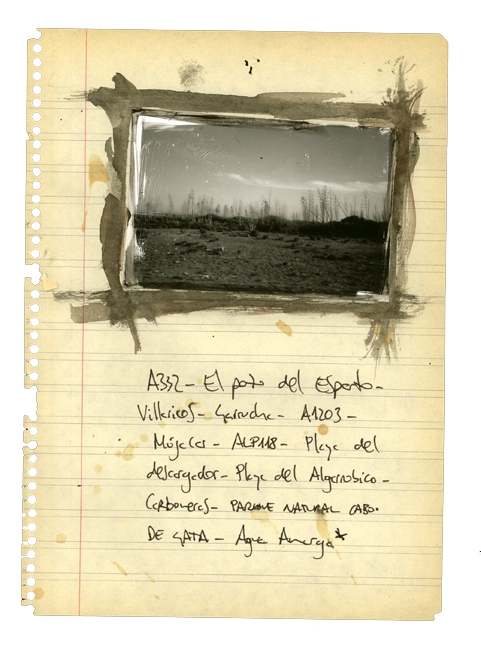 A332 - El pozo del Esparto -
Villaricos - Garrucha - A1203 -
Mojacar - ALP118 - Playa del
descargador - Playa del Algarrobico -
Carboneras - PARQUE NATURAL CABO.
DE GATA - Agua Amarga*